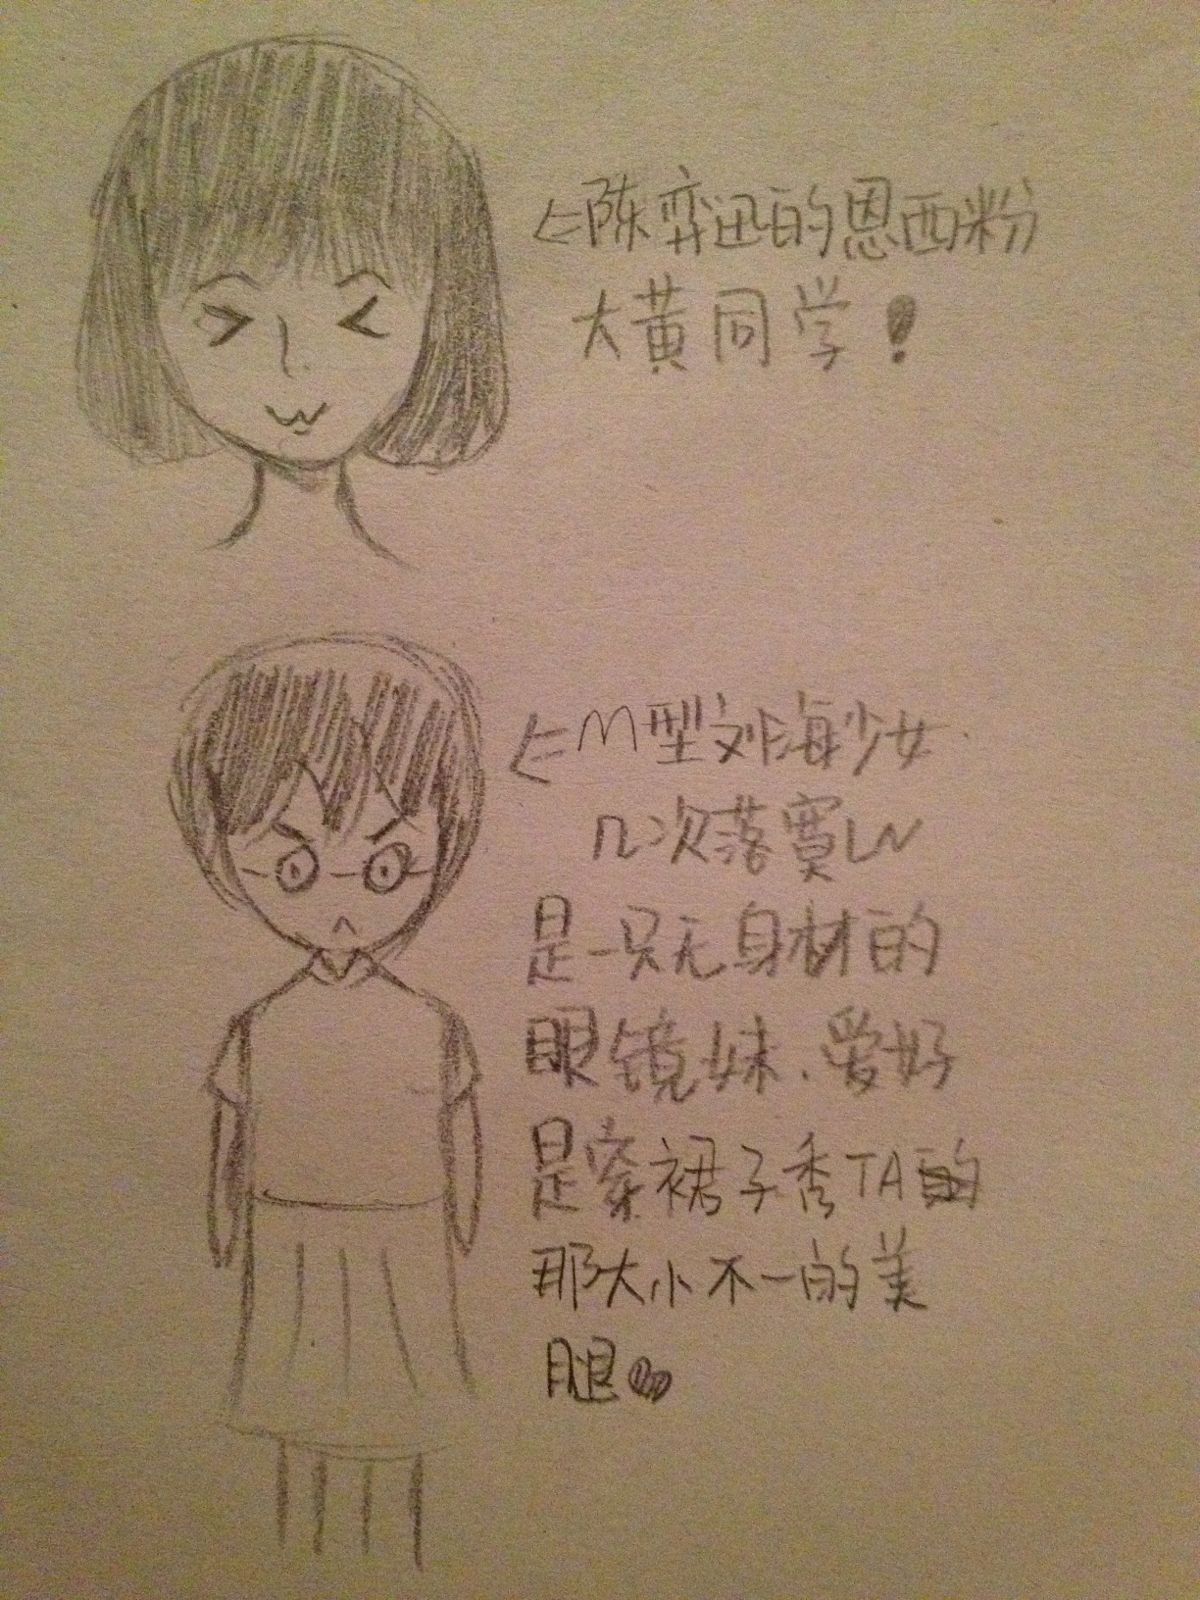 陈奕迅的恩西粉
大黄同学！
M型刘海少女
几次落寞LN
是一只无身材的
眼镜妹、爱好
是穿裙子秀TA
那大小不一的美
腿